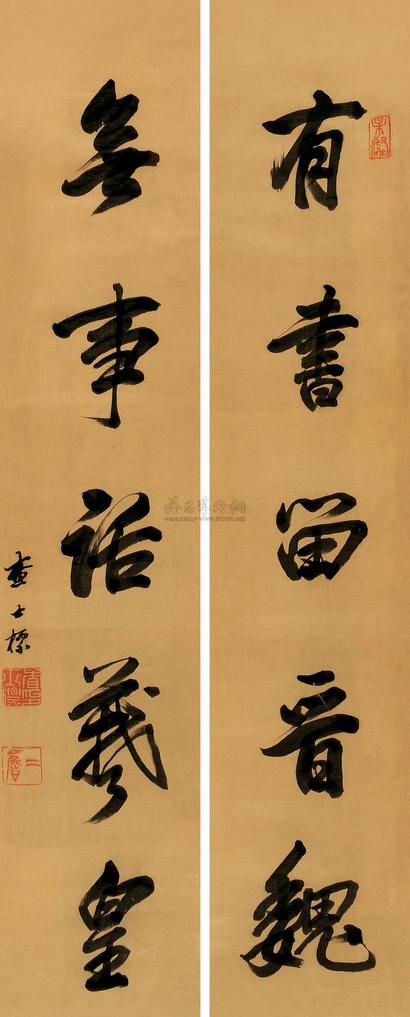 有書留晉魏
無事話羲皇
查士標
雅昌藝術網
www.artron.net